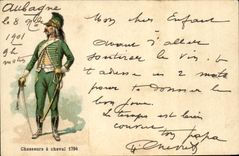 Aubagne
le 8 9bre
1901
9h
matin
Mon cher Enfant
avant d'aller
soutirer le vin. Je
t'adresse en 2 mots
pour te donner le
bon jour.
Le temps est bien
couvert
ton papa
Chasseurs à cheval 1794